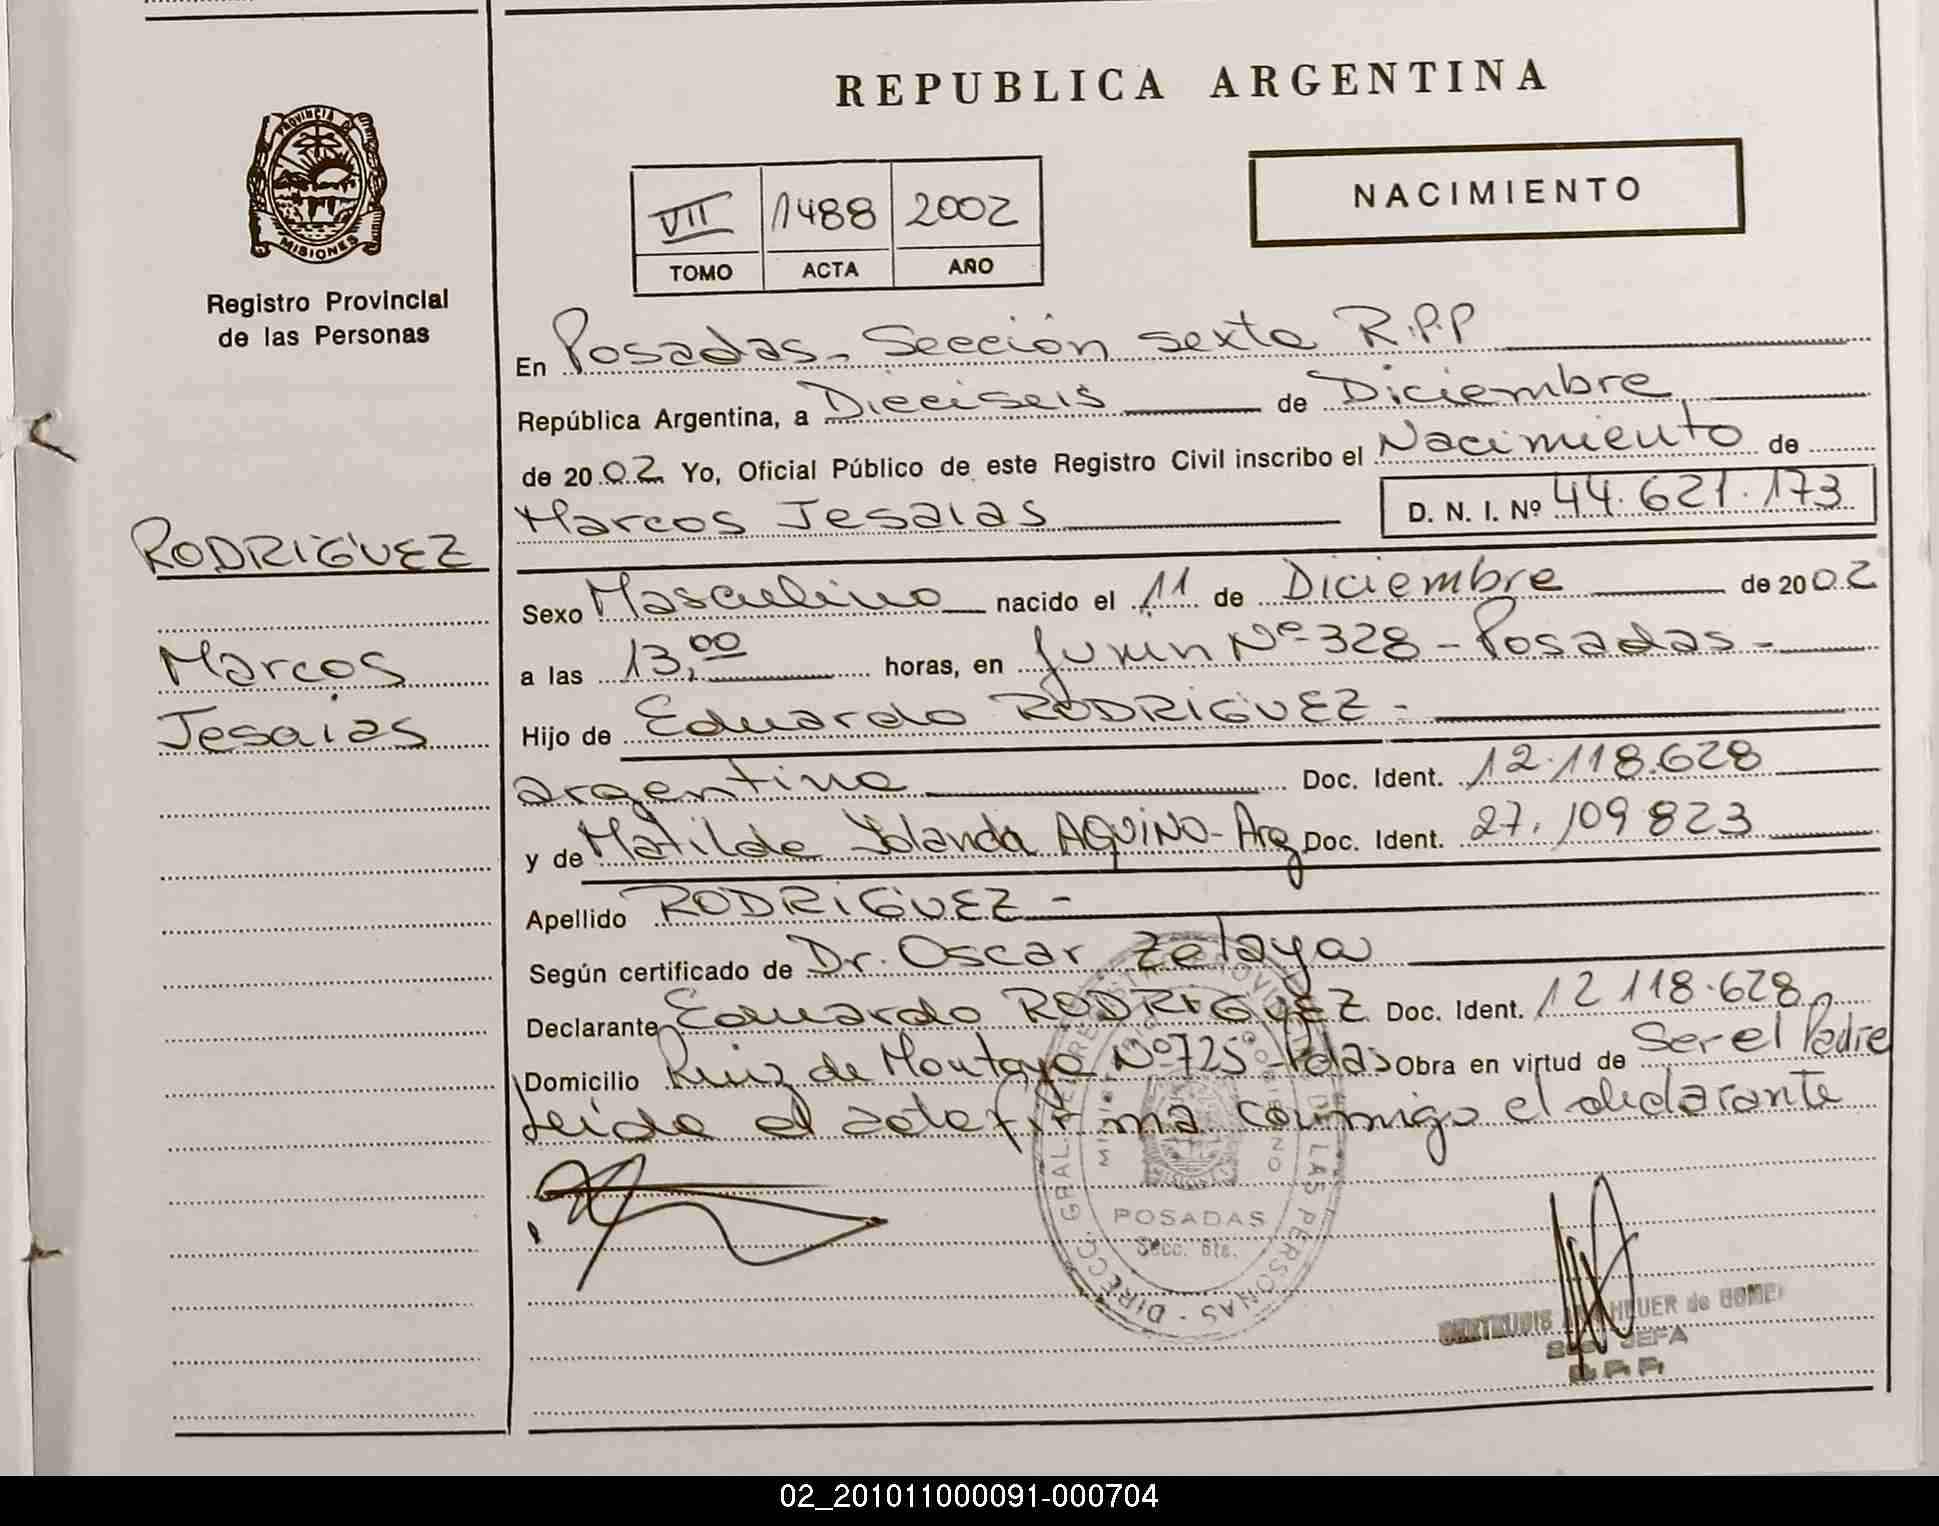 REPUBLICA ARGENTINA
PROVINCIA DE
MISIONES
Registro Provincial
de las Personas
VII 1488 2002
TOMO ACTA AÑO
NACIMIENTO
En Posadas. Sección sexta R.P.P
República Argentina, a Dieciseis de Diciembre
de 2002 Yo, Oficial Público de este Registro Civil inscribo el Nacimiento de
Marcos Jesaias D. N. I. Nº 44.621.173
RODRIGUEZ
Marcos
Jesaias
Sexo Masculino nacido el 11 de Diciembre de 2002
a las 13,00 horas, en Junin Nº 328 - Posadas -
Hijo de Eduardo RODRIGUEZ -
argentino Doc. Ident. 12.118.628
y de Matilde Yolanda AQUINO - Arg Doc. Ident. 27.109823
Apellido RODRIGUEZ -
Según certificado de Dr. Oscar Zelaya
Declarante Eduardo RODRIGUEZ Doc. Ident. 12 118.628
Domicilio Ruiz de Montoya Nº 725 - Pdas Obra en virtud de Ser el Padre
Leida el acta firma conmigo el declarante
DIRECC. GRAL. DE REGISTRO PROVINCIAL DE LAS PERSONAS
POSADAS
Secc. 6ta.
HEUER de GOMEZ
JEFA
R.P.P.
02_201011000091-000704